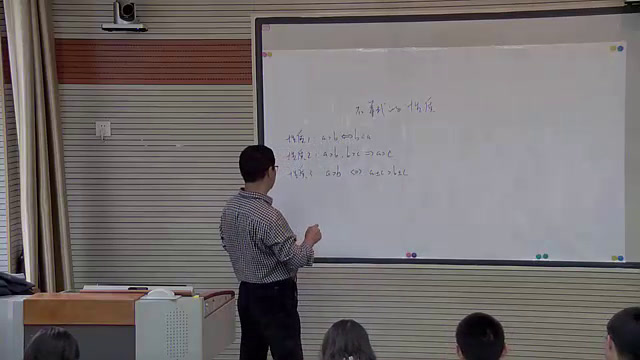 不等式的性质
性质1: a>b ⇔ b<a
性质2: a>b, b>c ⇒ a>c
性质3: a>b ⇔ a±c>b±c